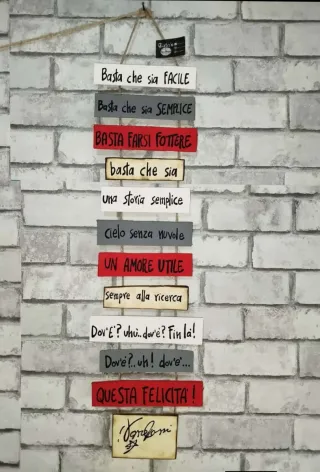 Basta che sia FACILE
Basta che sia SEMPLICE
BASTA FARSI FOTTERE
basta che sia
una storia semplice
cielo senza nuvole
UN AMORE UTILE
sempre alla ricerca
Dov'è? uhù.. dov'è? Fin là!
Dov'è?.. uh! dov'è...
QUESTA FELICITÀ!